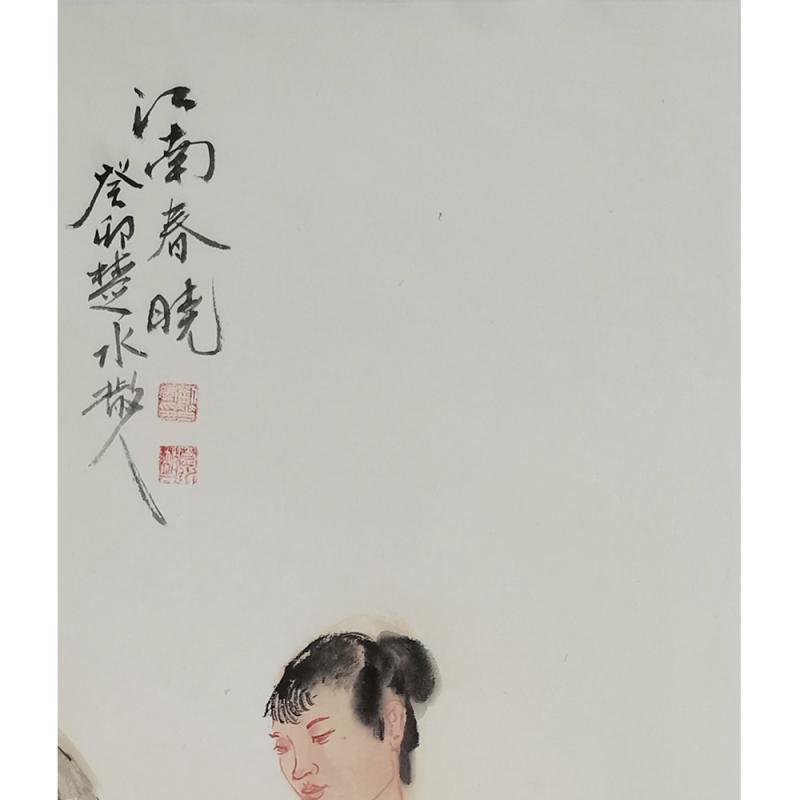 江南春晓
癸卯楚水散人